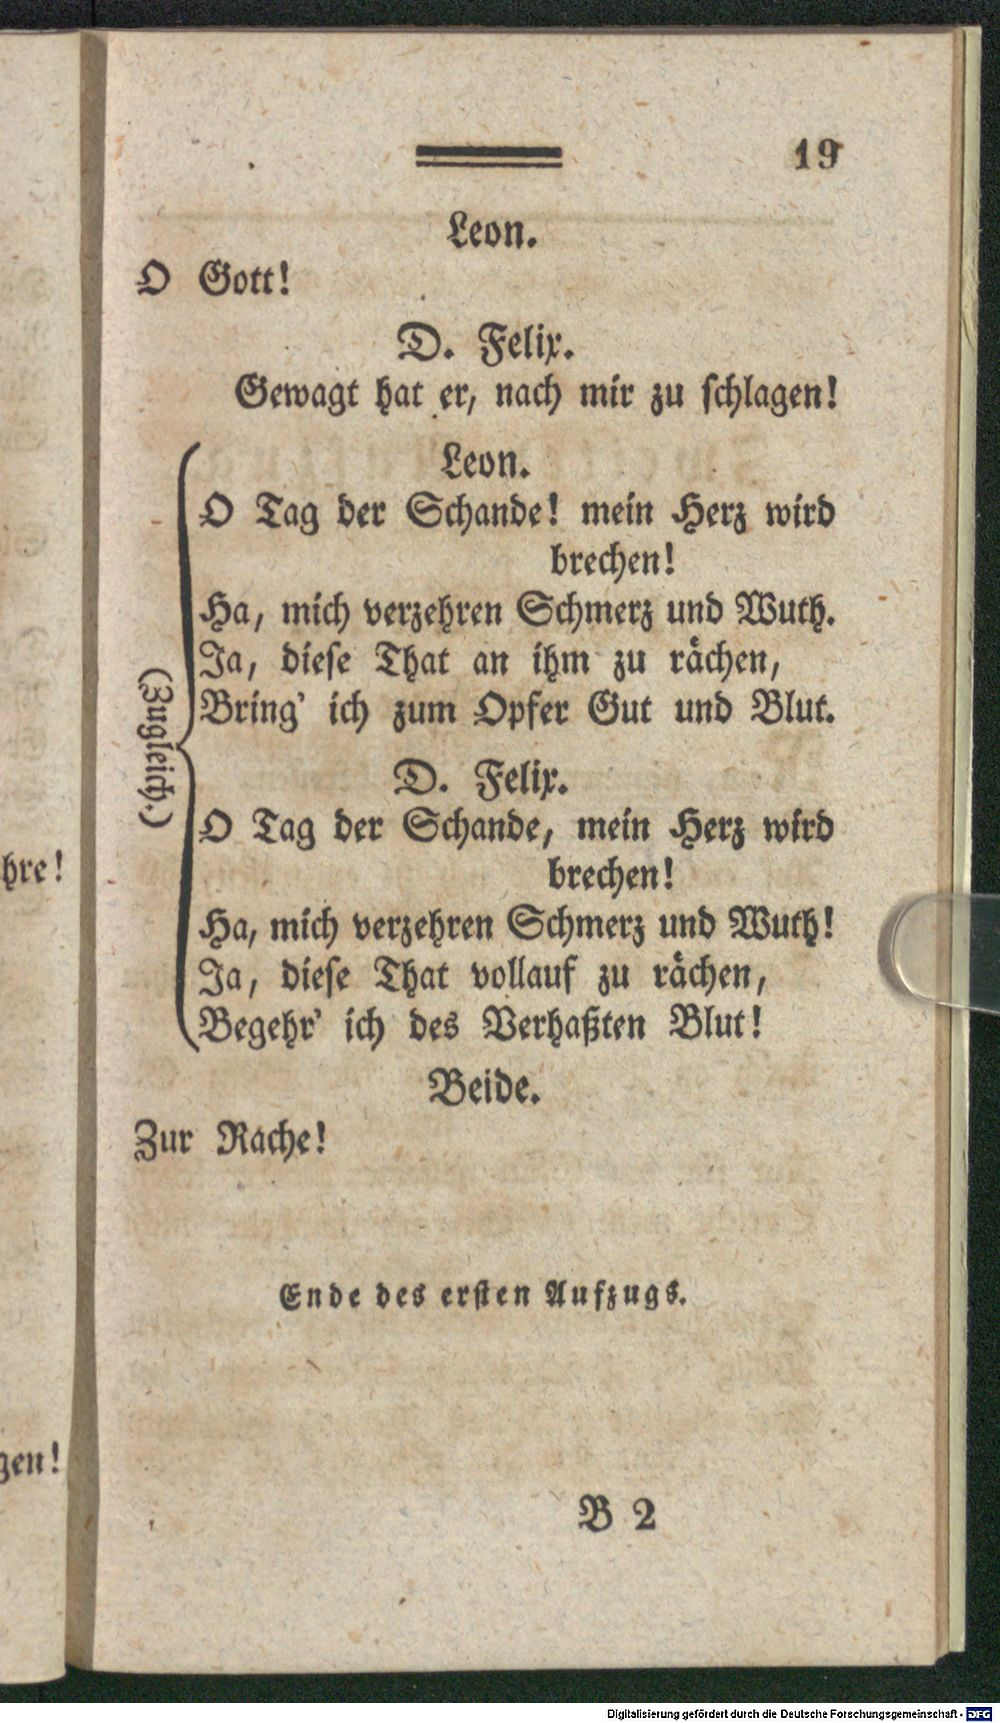 19
Leon.
O Gott!
D. Felix.
Gewagt hat er, nach mir zu schlagen!
(Zugleich.)
Leon.
O Tag der Schande! mein Herz wird
brechen!
Ha, mich verzehren Schmerz und Wuth.
Ja, diese That an ihm zu rächen,
Bring' ich zum Opfer Gut und Blut.
D. Felix.
O Tag der Schande, mein Herz wird
brechen!
Ha, mich verzehren Schmerz und Wuth!
Ja, diese That vollauf zu rächen,
Begehr' ich des Verhaßten Blut!
Beide.
Zur Rache!
Ende des ersten Aufzugs.
B 2
hre!
gen!
Digitalisierung gefördert durch die Deutsche Forschungsgemeinschaft - DFG